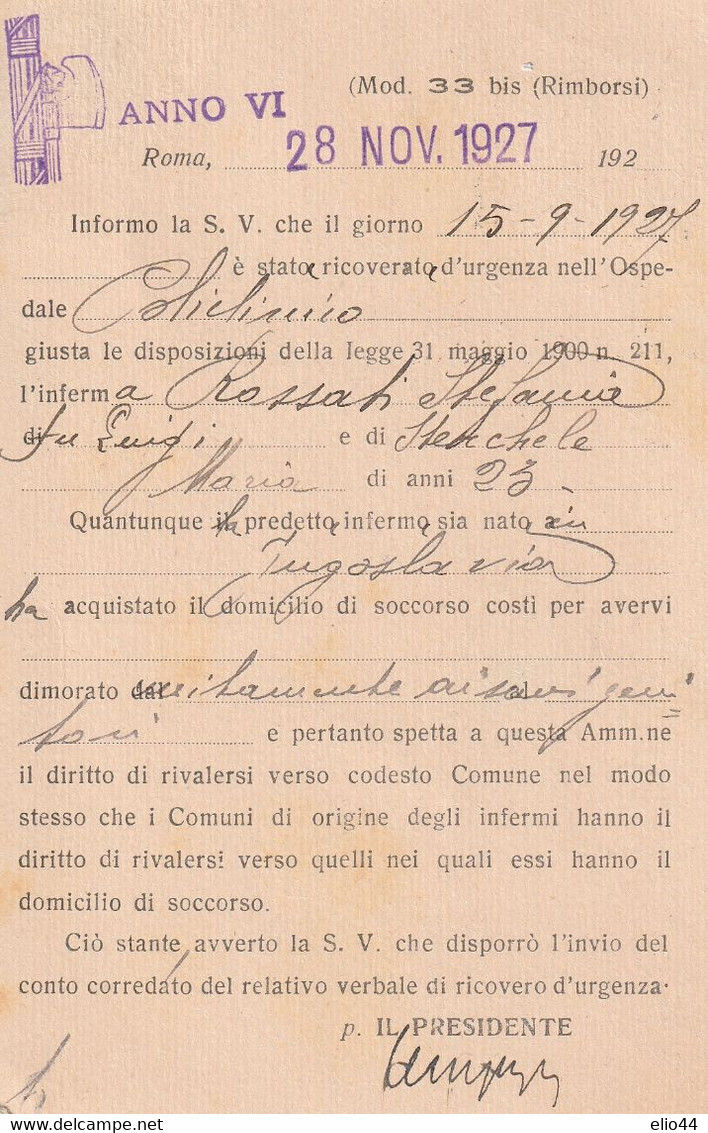 (Mod. 33 bis (Rimborsi)
ANNO VI
Roma, 28 NOV. 1927 192
Informo la S. V. che il giorno 15-9-1927
è stata ricoverata d'urgenza nell'Ospe-
dale Policlinico
giusta le disposizioni della legge 31 maggio 1900 n. 211,
l'inferma Rossati Stefania
fu Luigi e di Sterchele
Maria di anni 23
Quantunque la predetta inferma sia nata in
Jugoslavia
ha acquistato il domicilio di soccorso costì per avervi
dimorato unitamente ai suoi geni
tori e pertanto spetta a questa Amm.ne
il diritto di rivalersi verso codesto Comune nel modo
stesso che i Comuni di origine degli infermi hanno il
diritto di rivalersi verso quelli nei quali essi hanno il
domicilio di soccorso.
Ciò stante avverto la S. V. che disporrò l'invio del
conto corredato del relativo verbale di ricovero d'urgenza.
p. IL PRESIDENTE
elio44